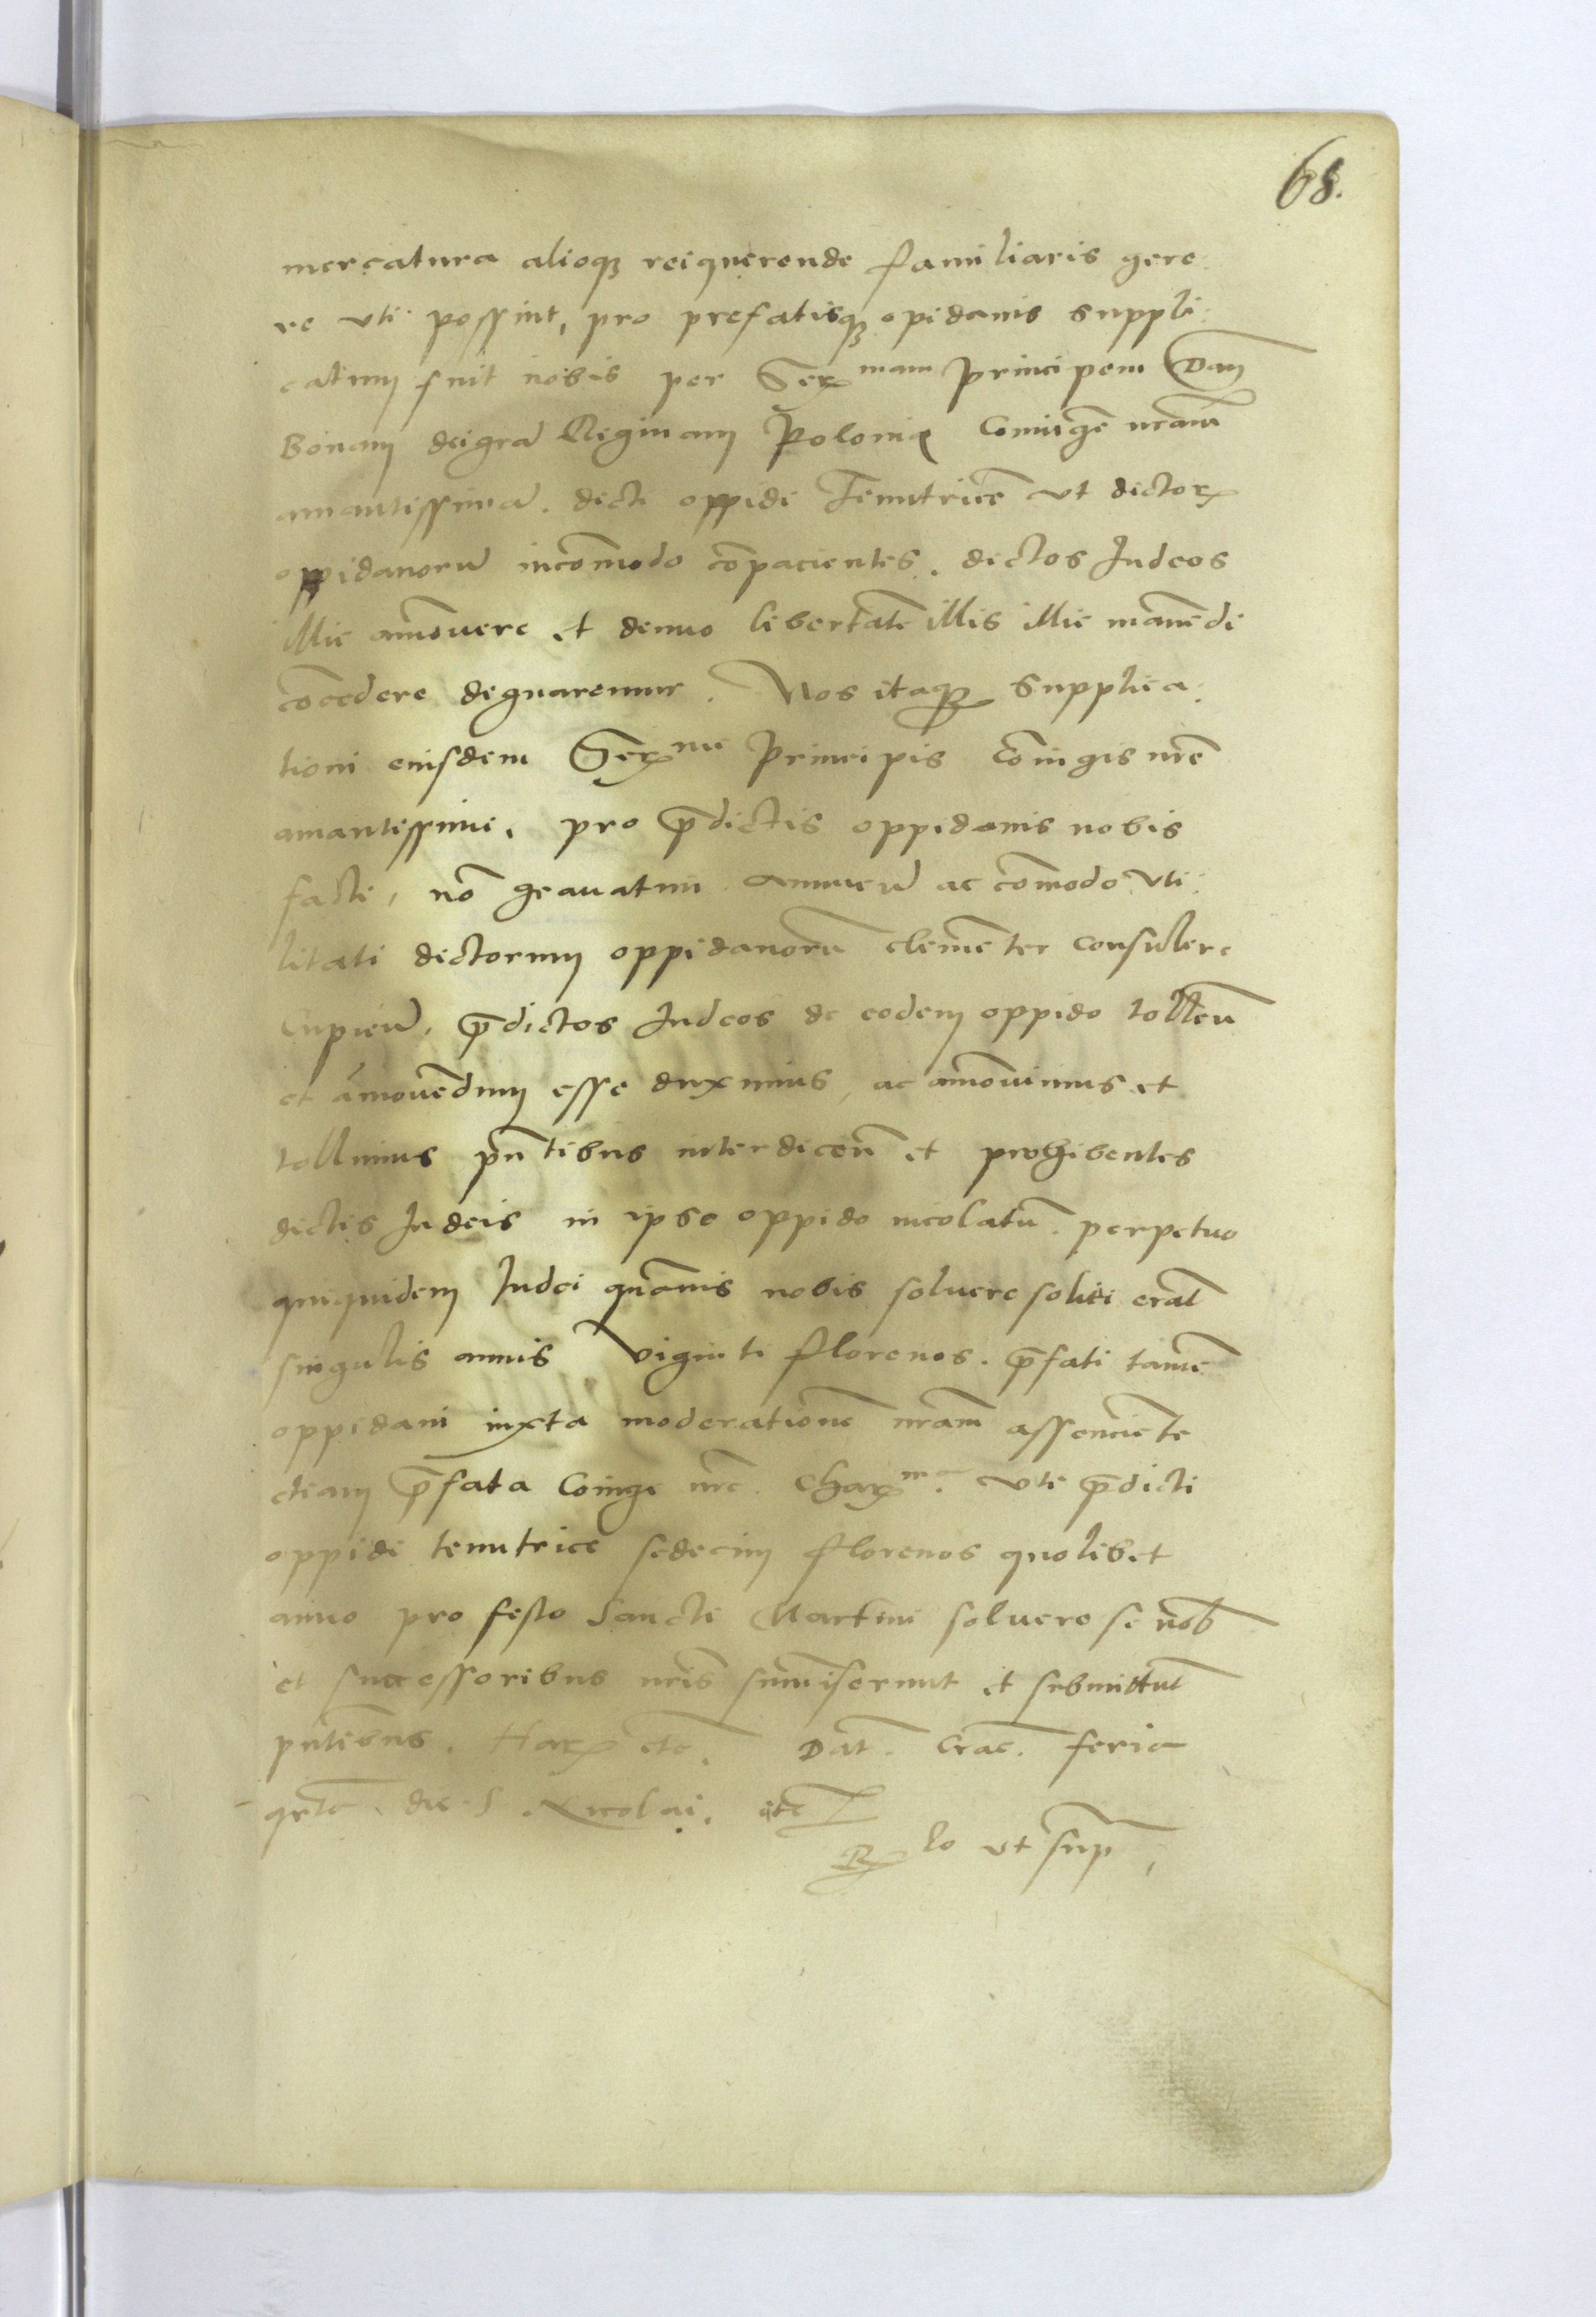 68.
mercatura alioqȝ rei querende familiaris gene:
re vti possint, pro prefatisqȝ opidanis suppli:
catum fuit nobis per Serꝝ mam principem Dam̄
Bonam dei gra͂ Reginam Polonię Coniugē nram̄
amantissima͂. dicti oppidi Tenutricē vt dictoꝝ
oppidanoru͂ incom̄odo cōpacientes. dictos Iudeos
illic am̄overe et demo libertatē illis illic manēdi
cōcedere dignaremur. Nos itaqȝ supplica:
tioni eiusdem Serꝝ me Principis Cōiugis nr̄e
amantissime. pro p̄dictis oppidanis nobis
facte, nō gravatim annuen͂ ac com̄odo vti:
litati dictorum oppidanoru͂ clemēter consulere
Cupien͂. p̄dictos Iudeos de eodem oppido tollen͂
et amovēdum esse duximus, ac amōvimus et
tollimus pn̄tibus interdicen͂ et prohibentes
dictis Iudeis in ipso oppido incolatu͂. perpetuo
quiquidem Iudei quāvis nobis solvere soliti erāt
singulis annis viginti florenos. p̄fati tamē
oppidani iuxta moderationē nram̄ assenciēte
etiam p̄fata Coiuge nr̄a Chaꝝ ma. vti p̄dicti
oppidi tenutrice sedecim florenos quolibet
anno pro festo Sancti Martini solvere se nob̄
et successoribus nr̄is sum̄iserunt et submittūt
pn̄tibus. Haꝝ etc. Dat. Crac. feria
qrta. die S. Nicolai. etc
Rꝝ lo vt sup̄,